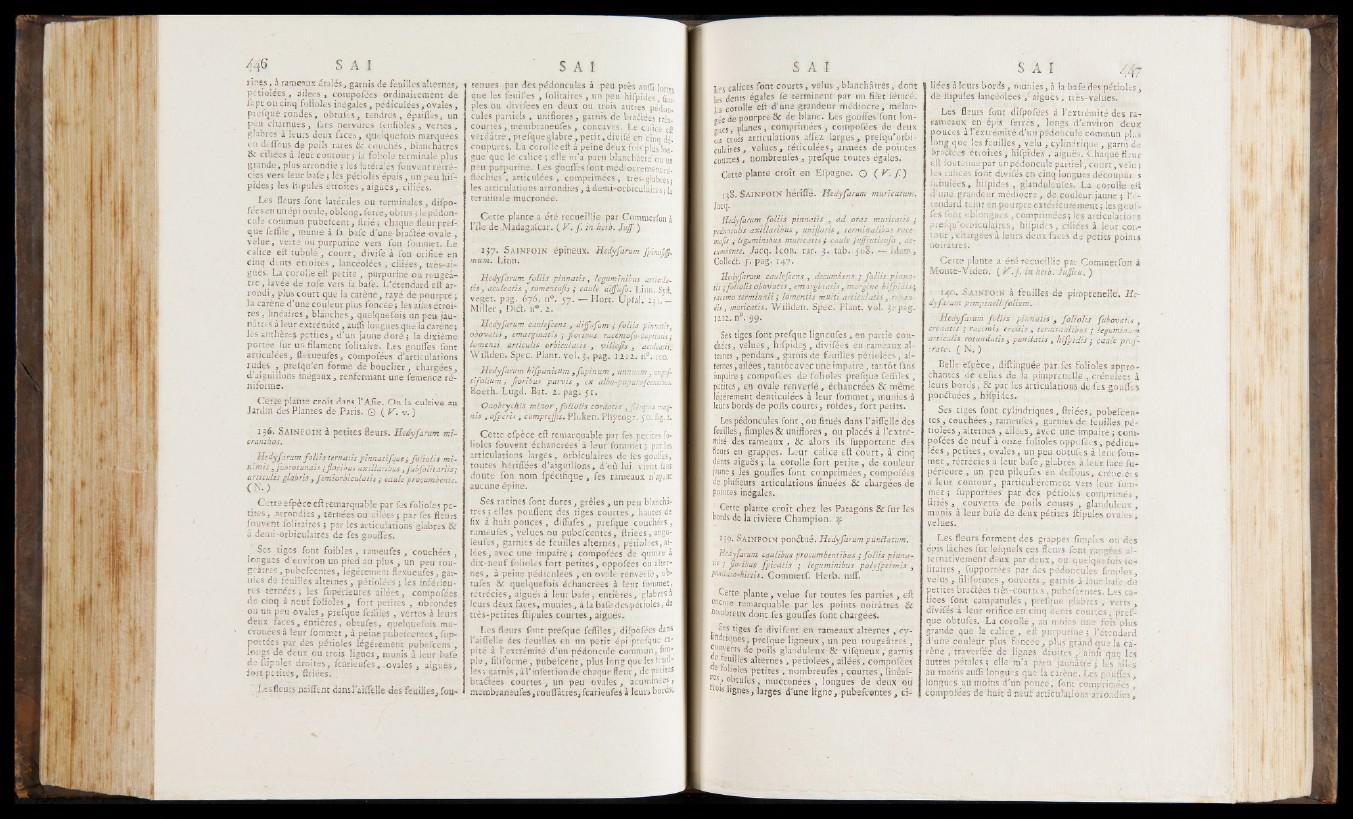 446 S A I
rines, à rameaux étalés, garnis de feuilles alternes,
pétiolées, ailées, compofées ordinairement de
fept ou cinq folioles inégales, pédiculées, ovales,
prefque rondes, obtufes, tendres, épaiffes, un
peu charnues, fans nervures fenfibles, vertes,
glabres à leurs deux faces, quelquefois marquées
en deffous de poils rares & couchés, blanchâtres
& ciliées à leur contour; la foliole terminale plus
grande, plus arrondie; les latérales fouvent rétré-
cies vers leur bafe; les pétioles épais, un peu hif-
pides; les ftipules étroites, aiguës, ciliées.
Les fleurs font latérales ou terminales, difpo-
fées en un épi ovale, oblong, ferré, obtus; le pédon-
cule commun pubefcent, ftrié; chaque fleur pref-
que feffile, munie à fa bafe d'une bractée ovale,
velue, verte ou purpurine vers fon fommet. Le
calice eft tubulé, court, divifé à fon orifice en
cinq dents étroites, lancéolées, ciliées, très-ai-
guës. La corolle eft petite, purpurine ou rougeâ-
tre, lavée de rofe vers fa bafe. L'étendard eft ar-
rondi, plus court que la carène, rayé de pourpre;
la carène d'une couleur plus foncée; les ailes étroi-
tes, linéaires, blanches, quelquefois un peu jau-
nâtres à leur extrémité, auffi longues que la carène;
les anthères petites, d'un jaune doré; la dixième
portée fur un filament folitaire. Les gouffes font
articulées, flexueufes, compofées d'articulations
rudes, prefqu'en forme de bouclier, chargées
d'aiguillons inégaux, renfermant une femence ré-
niforme.
Cette plante croît dans l'Afie. On la cultive au
Jardin des Plantes de Paris. ☉ ( V. v. )
136. SAINFOIN à petites fleurs. Hedyfarum mi-
cranthos.
Hedyfarum foliis ternatis pinnatifque; foliolis mi-
nimis, fubrotundis; floribus axillaribus, fubfolitariis;
articulis glabris, femiorbiculatis; caule procumbente.
( N. )
Cette efpèce eft remarquable par fes folioles pe-
tites, arrondies, ternées ou ailées; par fes fleurs
fouvent folitaires; par les articulations glabres &
à demi-orbiculaires de fes gouffes.
Ses tiges font foibles, rameufes, couchées,
longues d'environ un pied au plus, un peu rou-
geâtres, pubefcentes, légérement flexueufes, gar-
nies de feuilles alternes, pétiolées; les inférieu-
res ternées; les fupérieures ailées, compofées
de cinq à neuf folioles, fort petites, obrondes
ou un peu ovales, prefque feffiles, vertes à leurs
deux faces, entières, obtufes, quelquefois mu-
cronées à leur fommet, à peine pubefcentes, fup-
portées par des pétioles légérement pubefcens,
longs de deux ou trois lignes, munis à leur bafe
de ftipules droites, fcarieufes, ovales, aiguës,
fort petites, ftriées.
Les fleurs naiffent dans l'aiffelle des feuilles, fou-
S A I
tenues par des pédoncules à peu près auffi longs
que les feuilles, folitaires, un peu hifpides, fim-
ples ou divifées en deux ou trois autres pédon-
cules partiels, uniflores, garnis de bractées très-
courtes, membraneufes, concaves. Le calice eft
verdâtre, prefque glabre, petit, divifé en cinq dé-
coupures. La corolle eft à peine deux fois plus lon-
gue que le calice; elle m'a paru blanchâtre ou un
peu purpurine. Les gouffes font médiocrement ré-
fléchies, articulées, comprimées, très-glabres;
les articulations arrondies, à demi-orbiculaires; la
terminale mucronée.
Cette plante a été recueillie par Commerfon à
l'île de Madagafcar. ( V. f. in herb. Juff. )
137. SAINFOIN épineux. Hedyfarum fpinofiffi-
mum. Linn.
Hedyfarum foliis pinnatis, leguminibus articula-
tis, aculeatis, tomentofis; caule diffufo. Linn. Syft.
veget. pag. 676. n°. 57. — Hort. Upfal. 231. —
Miller, Dict. n°. 2.
Hedyfarum caulefcens, diffufum; foliis pinnatis,
obovatis, emarginatis; floribus racemofo-capitatis;
lomenti articulis orbiculatis, villofis, aculeatis.
Willden. Spec. Plant. vol. 3. pag. 1212. n°. 100.
Hedyfarum hifpanicum, fupinum, annuum, anguf-
tifolium, floribus parvis, ex albo-purpurafcentibus.
Boerh. Lugd. Bat. 2. pag. 51.
Onobrychis minor, foliolis cordatis, filiquis mag-
nis, afperis, compreffis. Pluken. Phytogr. 50. fig. 2.
Cette efpèce eft remarquable par fes petites fo-
lioles fouvent échancrées à leur fommet; par les
articulations larges, orbiculaires de fes gouffes,
toutes hériffées d'aiguillons, d'où lui vient fans
doute fon nom fpécifique, fes rameaux n'ayant
aucune épine.
Ses racines font dures, grêles, un peu blanchâ-
tres; elles pouffent des tiges courtes, hautes de
fix à huit pouces, diffufes, prefque couchées,
rameufes, velues ou pubefcentes, ftriées, angu-
leufes, garnies de feuilles alternes, pétiolées, ai-
lées, avec une impaire; compofées de quinze à
dix-neuf folioles fort petites, oppofées ou alter-
nes, à peine pédiculées, en ovale renverfé, ob-
tufes & quelquefois échancrées à leur fommet,
rétrécies, aiguës à leur bafe, entières, glabres à
leurs deux faces, munies, à la bafe des pétioles, de
très-petites ftipules courtes, aiguës.
Les fleurs font prefque feffiles, difpofées dans
l'aiffelle des feuilles en un petit épi prefque ca-
pité à l'extrémité d'un pédoncule commun, fim-
ple, filiforme, pubefcent, plus long que les feuil-
les; garnis, à l'infertion de chaque fleur, de petites
bractées courtes, un peu ovales, acuminées,
membraneufes, rouffâtres, fcarieufes à leurs bords.
S A I
Les calices font courts, velus, blanchâtres, dont
les dents égales fe terminent par un filet féracé.
La corolle eft d'une grandeur médiocre, mélan-
gée de pourpre & de blanc. Les gouffes font lon-
gues, planes, comprimées, compofées de deux
ou trois articulations affez larges, prefqu'orbi-
culaires, velues, réticulées, armées de pointes
courtes, nombreufes, prefque toutes égales.
Cette plante croît en Efpagne. ☉ ( V. f. )
138. SAINFOIN hériffé. Hedyfarum muricatum.
Jacq.
Hedyfarum foliis pinnatis, ad oras muricatis;
pedunculis axillaribus, unifloris, terminalibus race-
mofis, leguminibus muricatis; caule fuffruticofo, de-
cumbente. Jacq. Icon. rar. 3. tab. 568. — Idem,
Collect. 5. pag. 147.
Hedyfarum caulefcens, decumbens; foliis pinna-
tis; foliolis obovatis, emarginatis, margine hifpidis;
racemo terminali; lomentis multi articulatis, repan-
dis, muricatis. Willden. Spec. Plant. vol. 3. pag.
1212. n°. 99.
Ses tiges font prefque ligneufes, en partie cou-
chées, velues, hifpides, divifées en rameaux al-
ternes, pendans, garnis de feuilles pétiolées, al-
ternes, ailées, tantôt avec une impaire, tantôt fans
impaire; compofées de folioles prefque feffiles,
petites, en ovale renverfé, échancrées & même
légérement denticulées à leur fommet, munies à
leurs bords de poils courts, roides, fort petits.
Les pédoncules font, ou fitués dans l'aiffelle des
feuilles, fimples & uniflores, ou placés à l'extré-
mité des rameaux, & alors ils fupportent des
fleurs en grappes. Leur calice eft court, à cinq
dents aiguës; la corolle fort petite, de couleur
jaune; les gouffes font comprimées, compofées
de plufieurs articulations finuées & chargées de
pointes inégales.
Cette plante croît chez les Patagons & fur les
bords de la rivière Champion. ♃
139. SAINFOIN ponctué. Hedyfarum punctatum.
Hedyfarum caulibus procumbentibus; foliis pinna-
tis; floribus fpicatis; leguminibus polyfpermis,
punctato-hirtis. Commerf. Herb. mff.
Cette plante, velue fur toutes fes parties, eft
même remarquable par les points noirâtres &
nombreux dont fes gouffes font chargées.
Ses tiges fe divifent en rameaux alternes, cy-
lindriques, prefque ligneux, un peu rougeâtres,
couverts de poils glanduleux & vifqueux, garnis
de feuilles alternes, pétiolées, ailées, compofées
de folioles petites, nombreufes, courtes, linéai-
res, obtufes, mucronées, longues de deux ou
trois lignes, larges d'une ligne, pubefcentes, ci-
S A I 447
liées à leurs bords, munies, à la bafe des pétioles,
de ftipules lancéolées, aiguës, très-velues.
Les fleurs font difpofées à l'extrémité des ra-
rameaux en épis ferrés, longs d'environ deux
pouces à l'extrémité d'un pédoncule commun plus
long que les feuilles, velu, cylindrique, garni de
bractées étroites, hifpides, aiguës. Chaque fleur
eft foutenue par un pédoncule partiel, court, velu;
les calices font divifés en cinq longues découpures
fubulées, hifpides, glanduleufes. La corolle eft
d'une grandeur médiocre, de couleur jaune; l'é-
tendard teint en pourpre extérieurement; les gouf-
fes font oblongues, comprimées; les articulations
prefqu'orbiculaires, hifpides, ciliées à leur con-
tour, chargées à leurs deux faces de petits points
noirâtres.
Cette plante a été recueillie par Commerfon à
Monte-Video. ( V. f. in herb. Juffieu. )
140. SAINFOIN à feuilles de pimprenelle. He-
dyfarum pimpinellifolium.
Hedyfarum foliis pinnatis, foliolis fubovatis,
crenatis; racemis erectis, terminalibus; leguminum
articulis rotundatis, punctatis, hifpidis; caule prof-
trato. ( N. )
Belle efpèce, diftinguée par fes folioles appro-
chantes de celles de la pimprenelle, crénelées à
leurs bords, & par les articulations de fes gouffes
ponctuées, hifpides.
Ses tiges font cylindriques, ftriées, pubefcen-
tes, couchées, rameufes, garnies de feuilles pé-
tiolées, alternes, ailées, avec une impaire; com-
pofées de neuf à onze folioles oppofées, pédicu-
lées, petites, ovales, un peu obtufes à leur fom-
met, rétrécies à leur bafe, glabres à leur face fu-
périeure, un peu pileufes en deffous, crénelées
à leur contour, particuliérement vers leur fom-
met; fupportées par des pétioles comprimés,
ftriés, couverts de poils courts, glanduleux,
munis à leur bafe de deux petites ftipules ovales,
velues.
Les fleurs forment des grappes fimples ou des
épis lâches fur lefquels ces fleurs font rangées al-
ternativement deux par deux, ou quelquefois fo-
litaires, fupportées par des pédoncules fimples,
velus, filiformes, ouverts, garnis à leur bafe de
petites bractées très-courtes, pubefcentes. Les ca-
lices font campanulés, prefque glabres, verts,
divifés à leur orifice en cinq dents courtes, pref-
que obtufes. La corolle, au moins une fois plus
grande que le calice, eft purpurine; l'étendard
d'une couleur plus foncée, plus grand que la ca-
rène, traverfée de lignes droites, ainfi que les
autres pétales; elle m'a paru jaunâtre; les ailes
au moins auffi longues que la carène. Les gouffes,
longues au moins d'un pouce, font comprimées,
compofées de huit à neuf articulations arrondies,